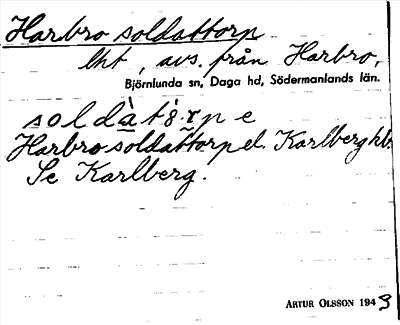 Harbro soldattorp
lht, avs. från Harbro,
Björnlunda sn, Daga hd, Södermanlands län.
soldàt8rpe
Harbro soldattorp el. Karlberg hb.
Se Karlberg.
ARTUR OLSSON 1943